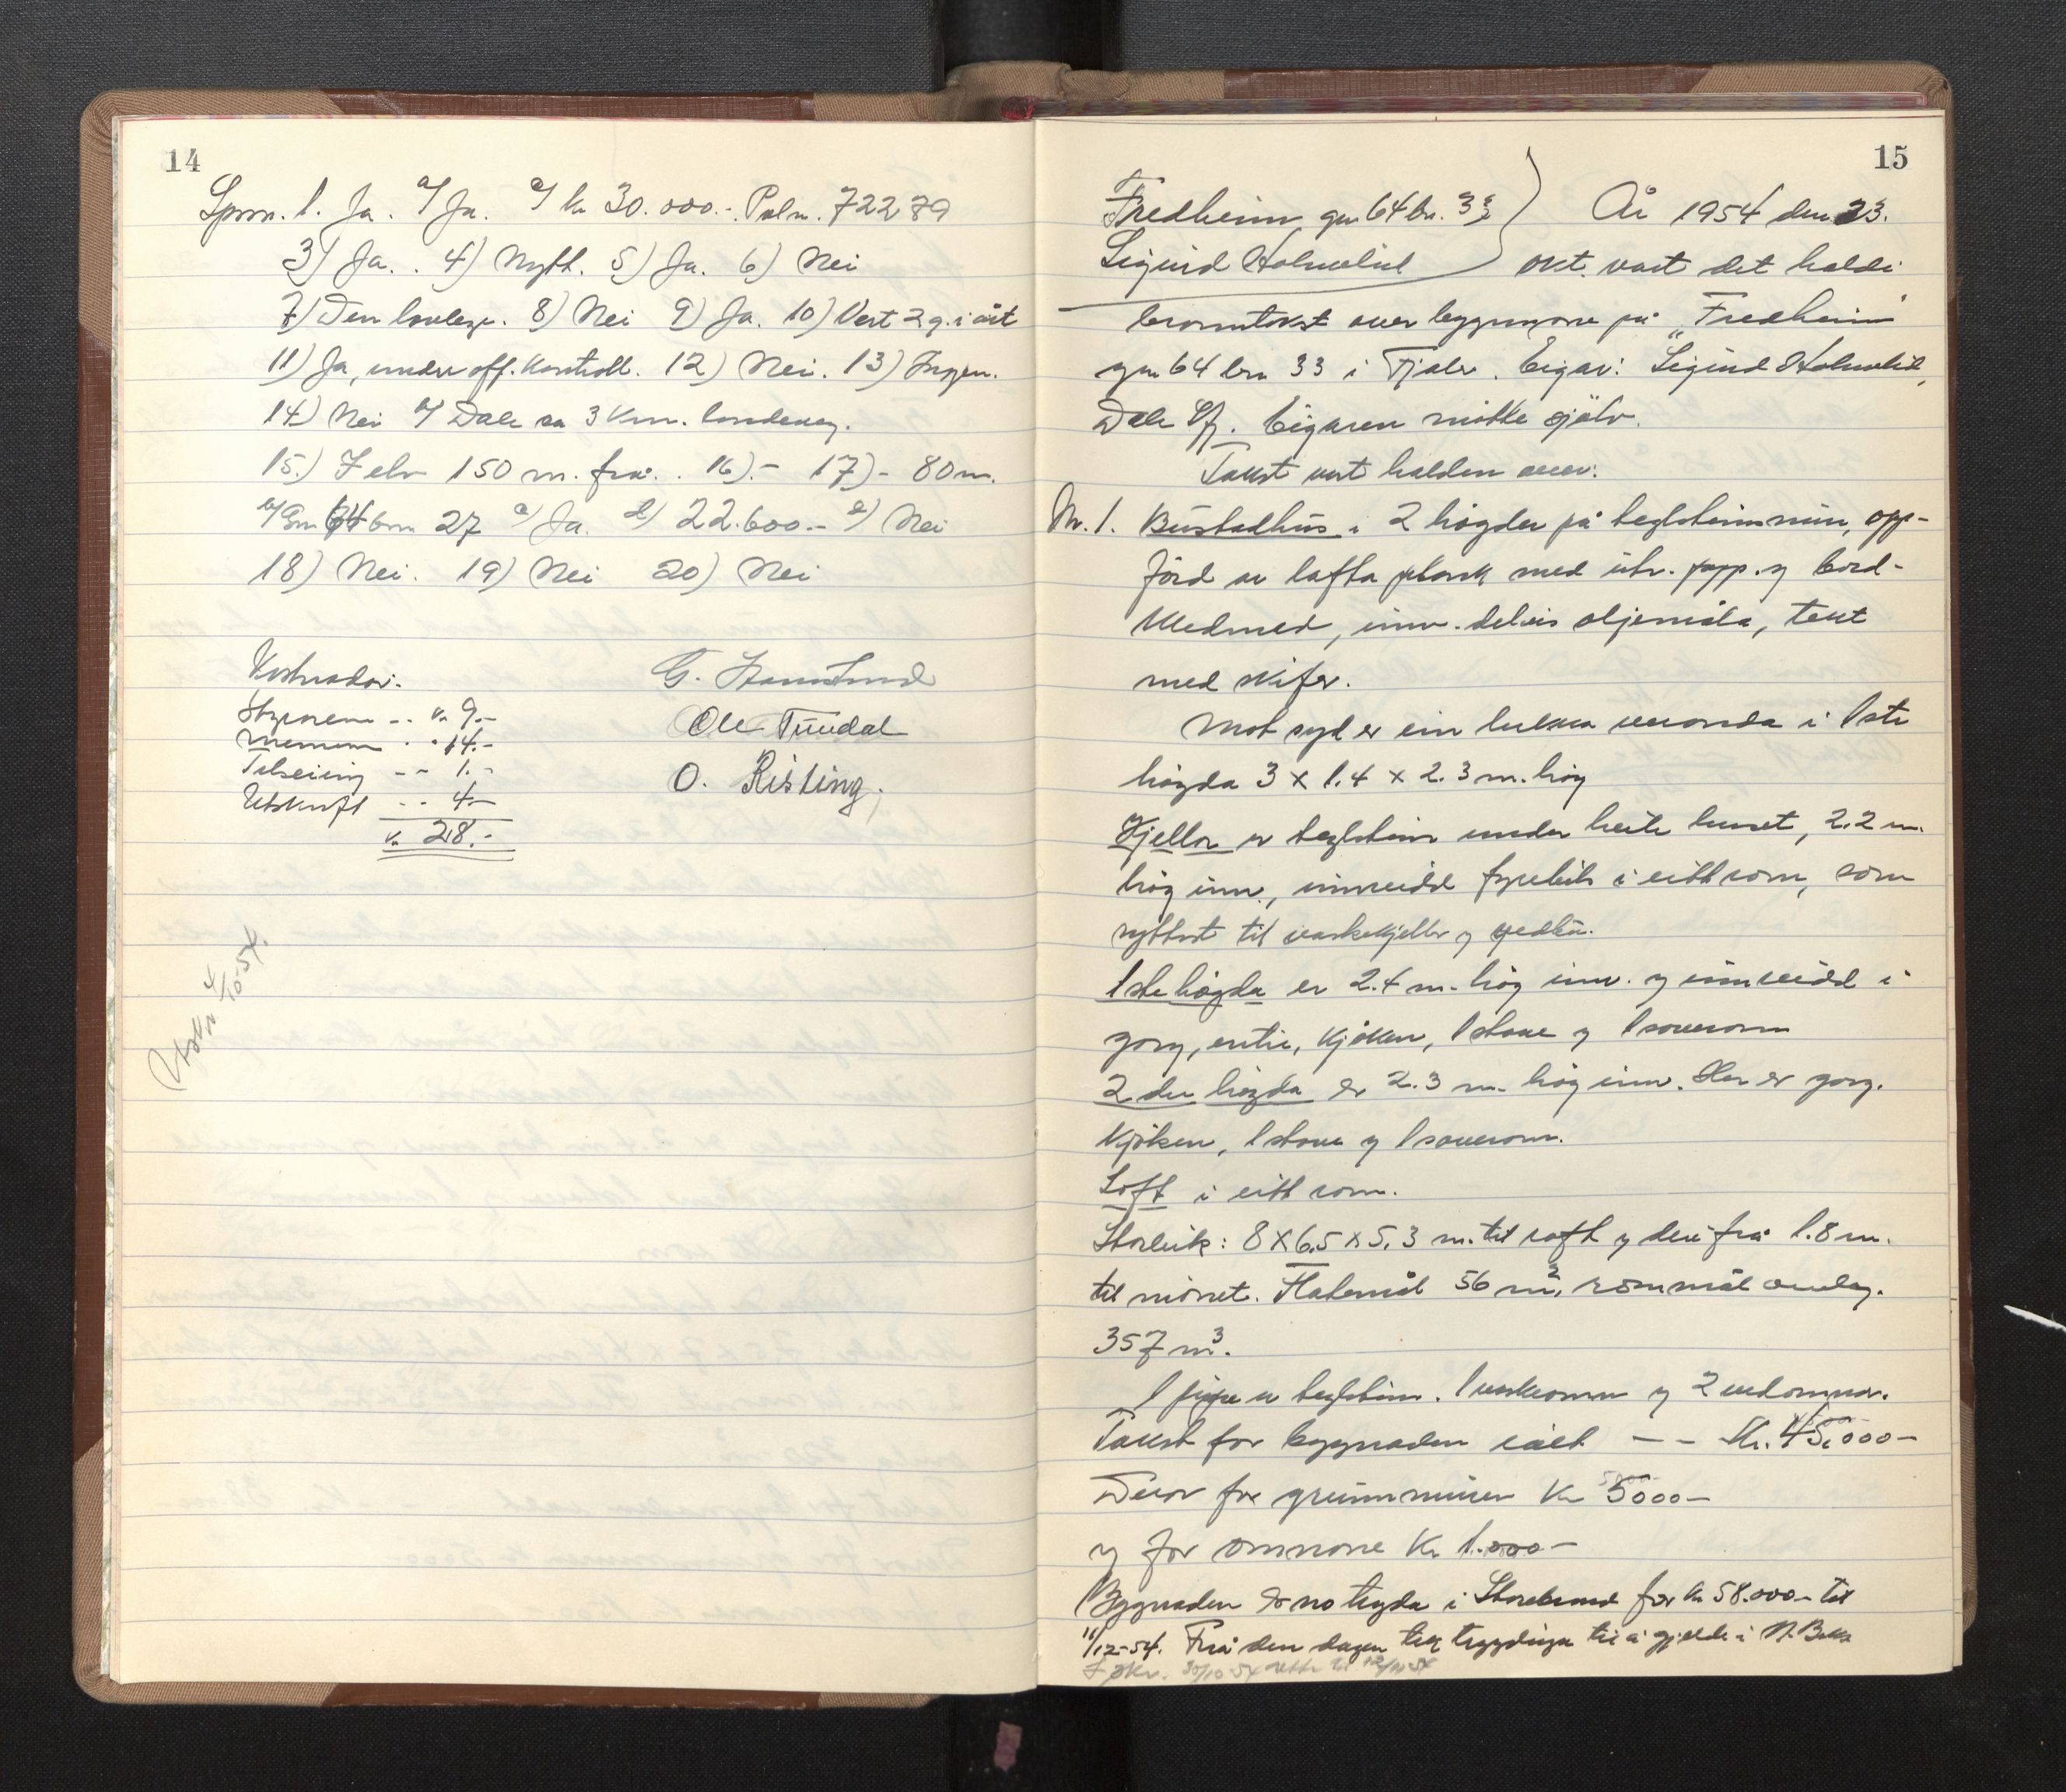 14
Spsm. 1. Ja. a/ Ja. c/ kr 30.000.- Pol.n. 72279
3) Ja. . 4) Nytt. 5) Ja. 6) Nei
7) Den lovlege. 8) Nei 9) Ja. 10) Vert 2 g. i året
11) Ja, under off. kontroll. 12) Nei. 13) Ingen.
14) Nei a/ Dale ca 3 km. landeveg.
15.) I elv 150 m. frå. . 16).- 17)- 80 m.
b/ Gn 64 bnr 27 c/ Ja. d/ 22.600.- e/ Nei
18) Nei. 19) Nei 20) Nei
Kostnadar.
Styraren -- kr 9.-
14.-
Tilseiing -- 1.-
Utskrift -- 4.-
kr 28.-
G.
Ole Tundal
O. Risting.
Utskr. 4/10-54.
15
Fredheim gnr 64 br. 33 ) År 1954 den 23.
Sigurd Holmelid okt. vart det halde
branntakst over bygningane på "Fredheim"
gnr 64 bnr 33 i Fjaler. Eigar: Sigurd Holmelid,
Dale Sfj. Eigaren møtte sjølv.
Takst vart halden over:
Nr. 1. Bustadhus i 2 høgder på teglsteinmur, opp-
ført av lafta plank med utv. papp og bord-
kledned, innv. delvis oljemåla, tekt
med skifer.
Mot syd er ein lukka veranda i 1ste
høgda 3 x 1.4 x 2.3 m. høg
Kjellar av teglstein under heile huset, 2.2 m.
høg innv., innreidd i eitt rom, som
nyttast til vaskekjellar og vedbu.
1ste høgda er 2.4 m. høg innv. og innreidd i
gang, entre, kjøken, 1 stove og 1 soverom
2dre høgda er 2.3 m. høg innv. Her er gang.
kjøken, 1 stove og 1 soverom.
Loft i eitt rom.
Storleik: 8 x 6.5 x 5.3 m. til raft og derifrå 1.8 m.
til mønet. Flatemål 56 m², rommål omlag.
357 m³.
1 pipe av teglstein. 1 vaskeomn og 2 vedomnar.
Takst for bygnaden ialt -- Kr. 45.000-
Derav for grunnmuren Kr 5000-
og for omnane Kr 1.000-
Bygnaden er no trygda i Storebrand for kr 58.000- til
11/12-54. Frå den dagen tek trygdinga til å gjelde i N. Br.
30/10-54